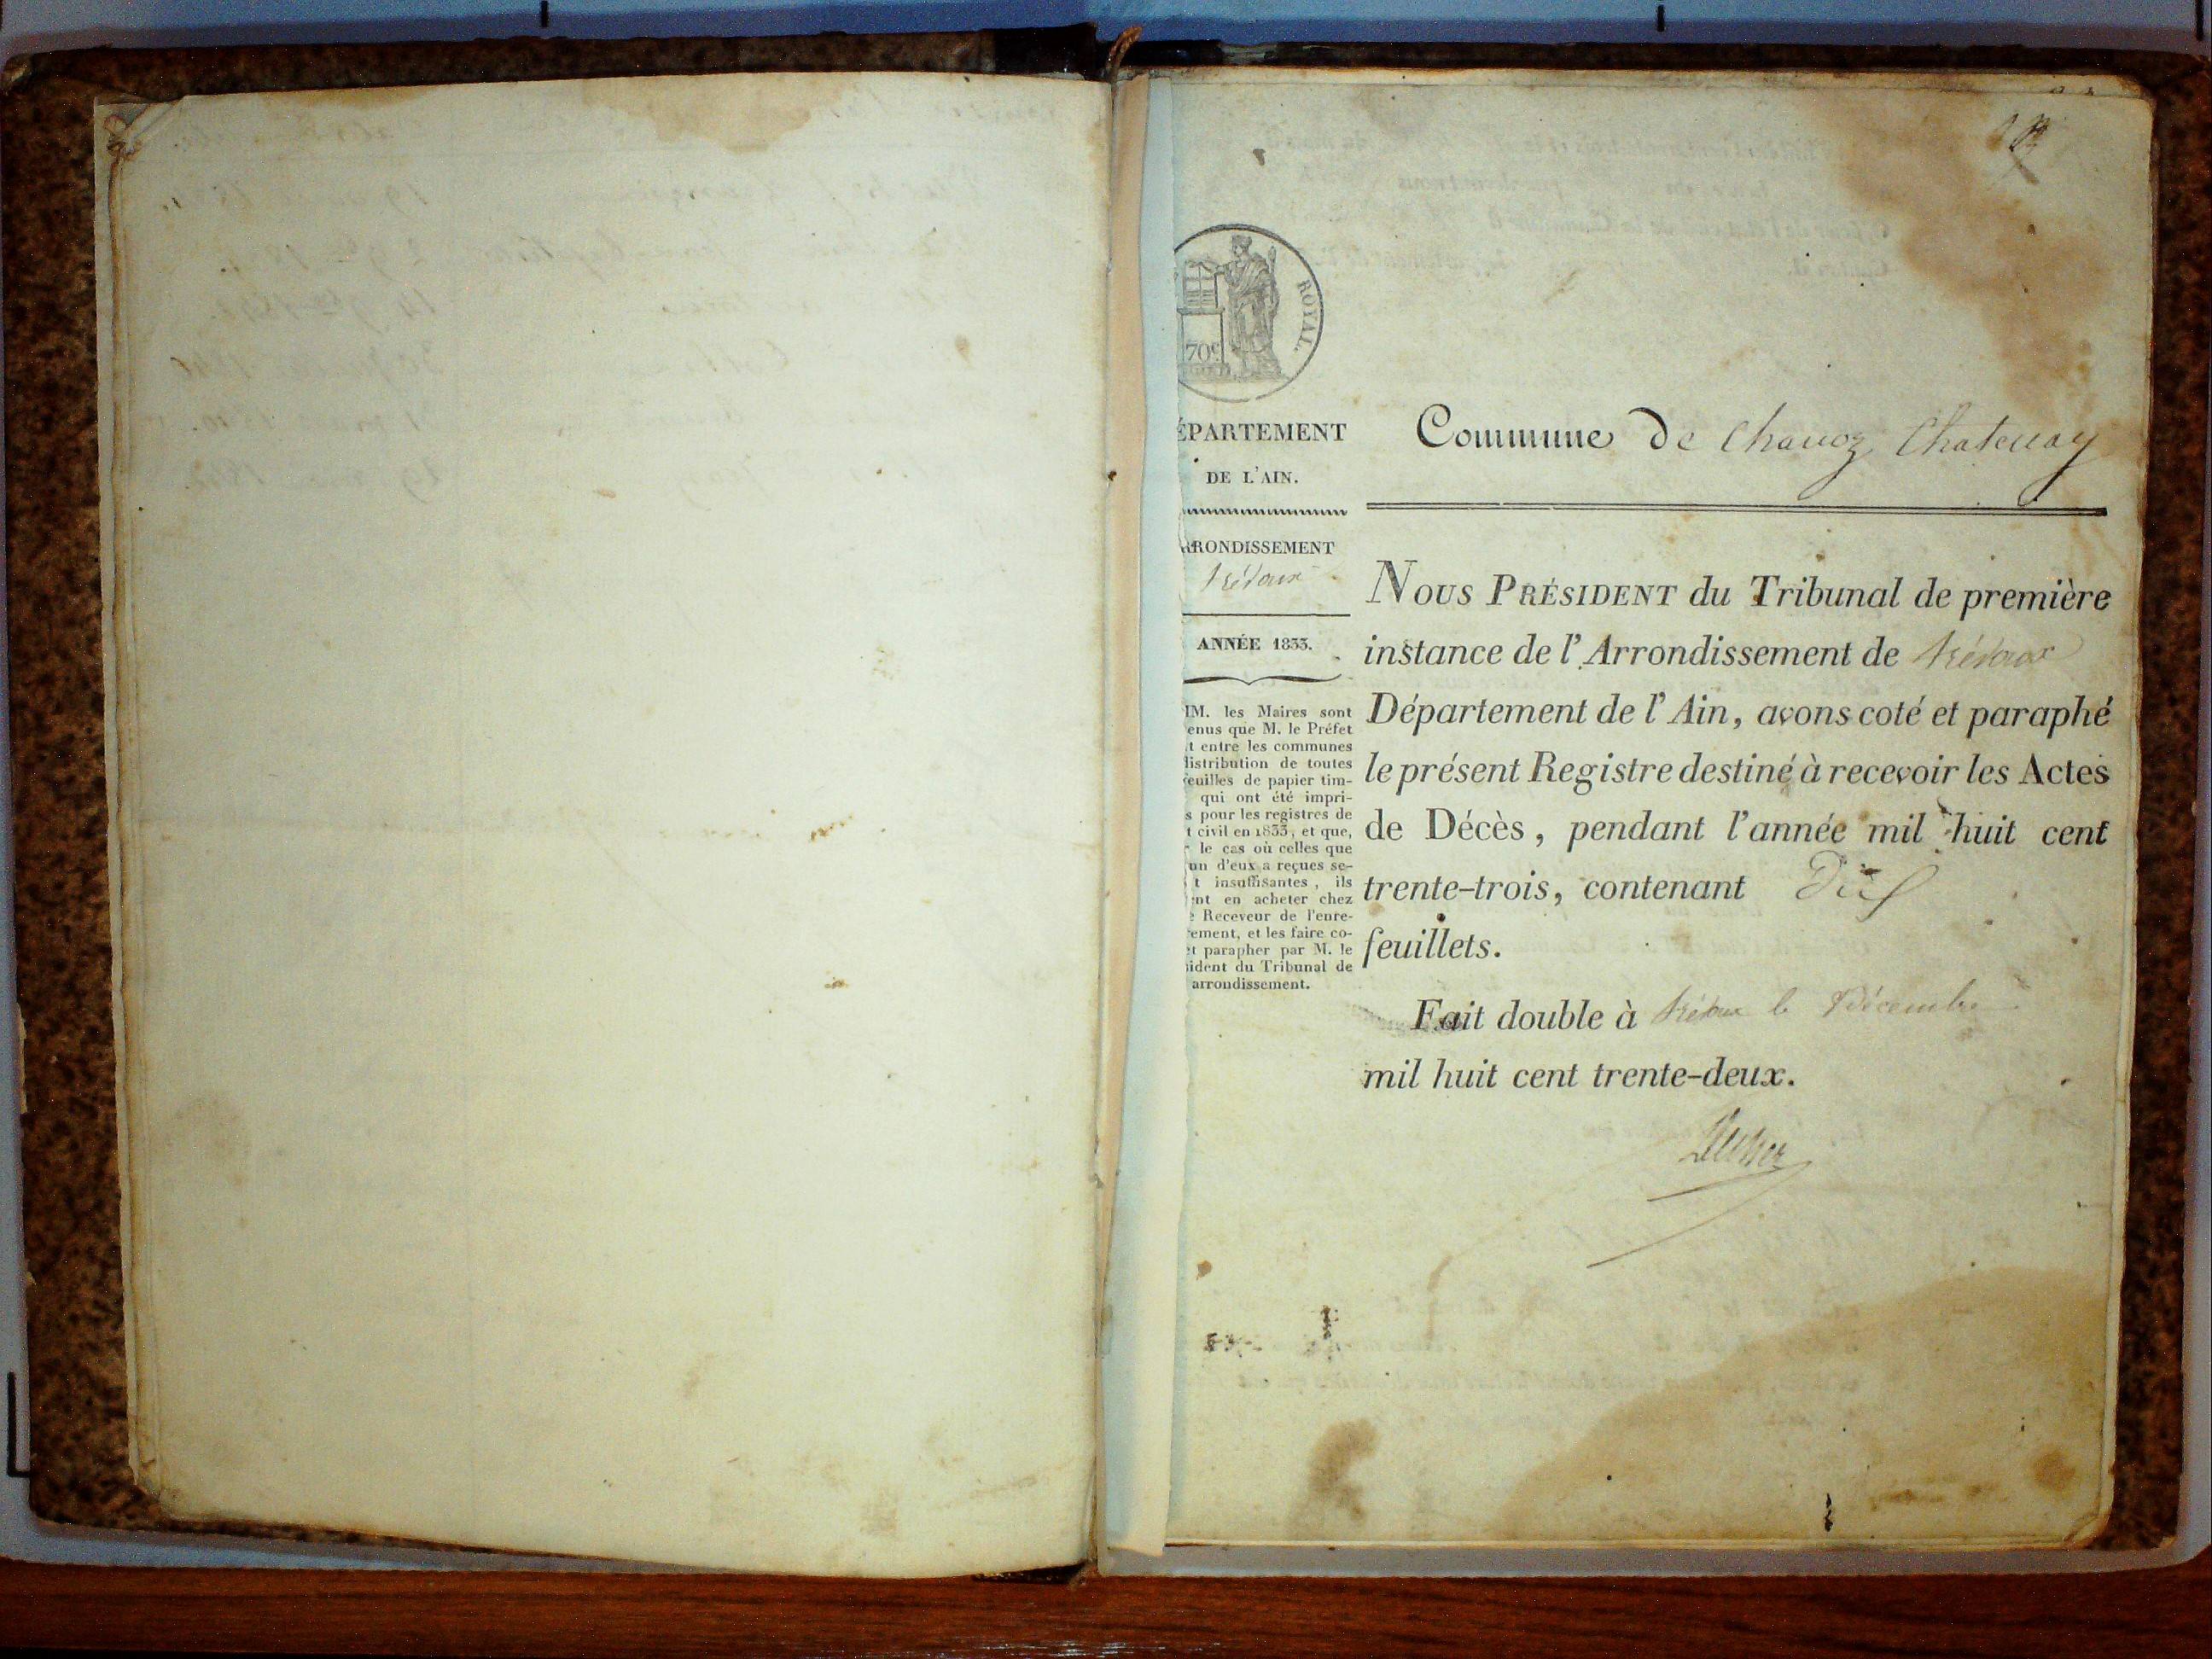 ROYAL.
70c
ÉPARTEMENT
DE L'AIN.
RRONDISSEMENT
Trévoux
ANNÉE 1833.
IM. les Maires sont
enus que M. le Préfet
t entre les communes
distribution de toutes
feuilles de papier tim-
qui ont été impri-
s pour les registres de
t civil en 1833, et que,
r le cas où celles que
un d'eux a reçues se-
t insuffisantes, ils
ent en acheter chez
e Receveur de l'enre-
ement, et les faire co-
et parapher par M. le
sident du Tribunal de
arrondissement.
Commune de Chanoz Chatenay
NOUS PRÉSIDENT du Tribunal de première
instance de l'Arrondissement de Trévoux
Département de l'Ain, avons coté et paraphé
le présent Registre destiné à recevoir les Actes
de Décès, pendant l'année mil huit cent
trente-trois, contenant Dix
feuillets.
Fait double à Trévoux le Décembre
mil huit cent trente-deux.